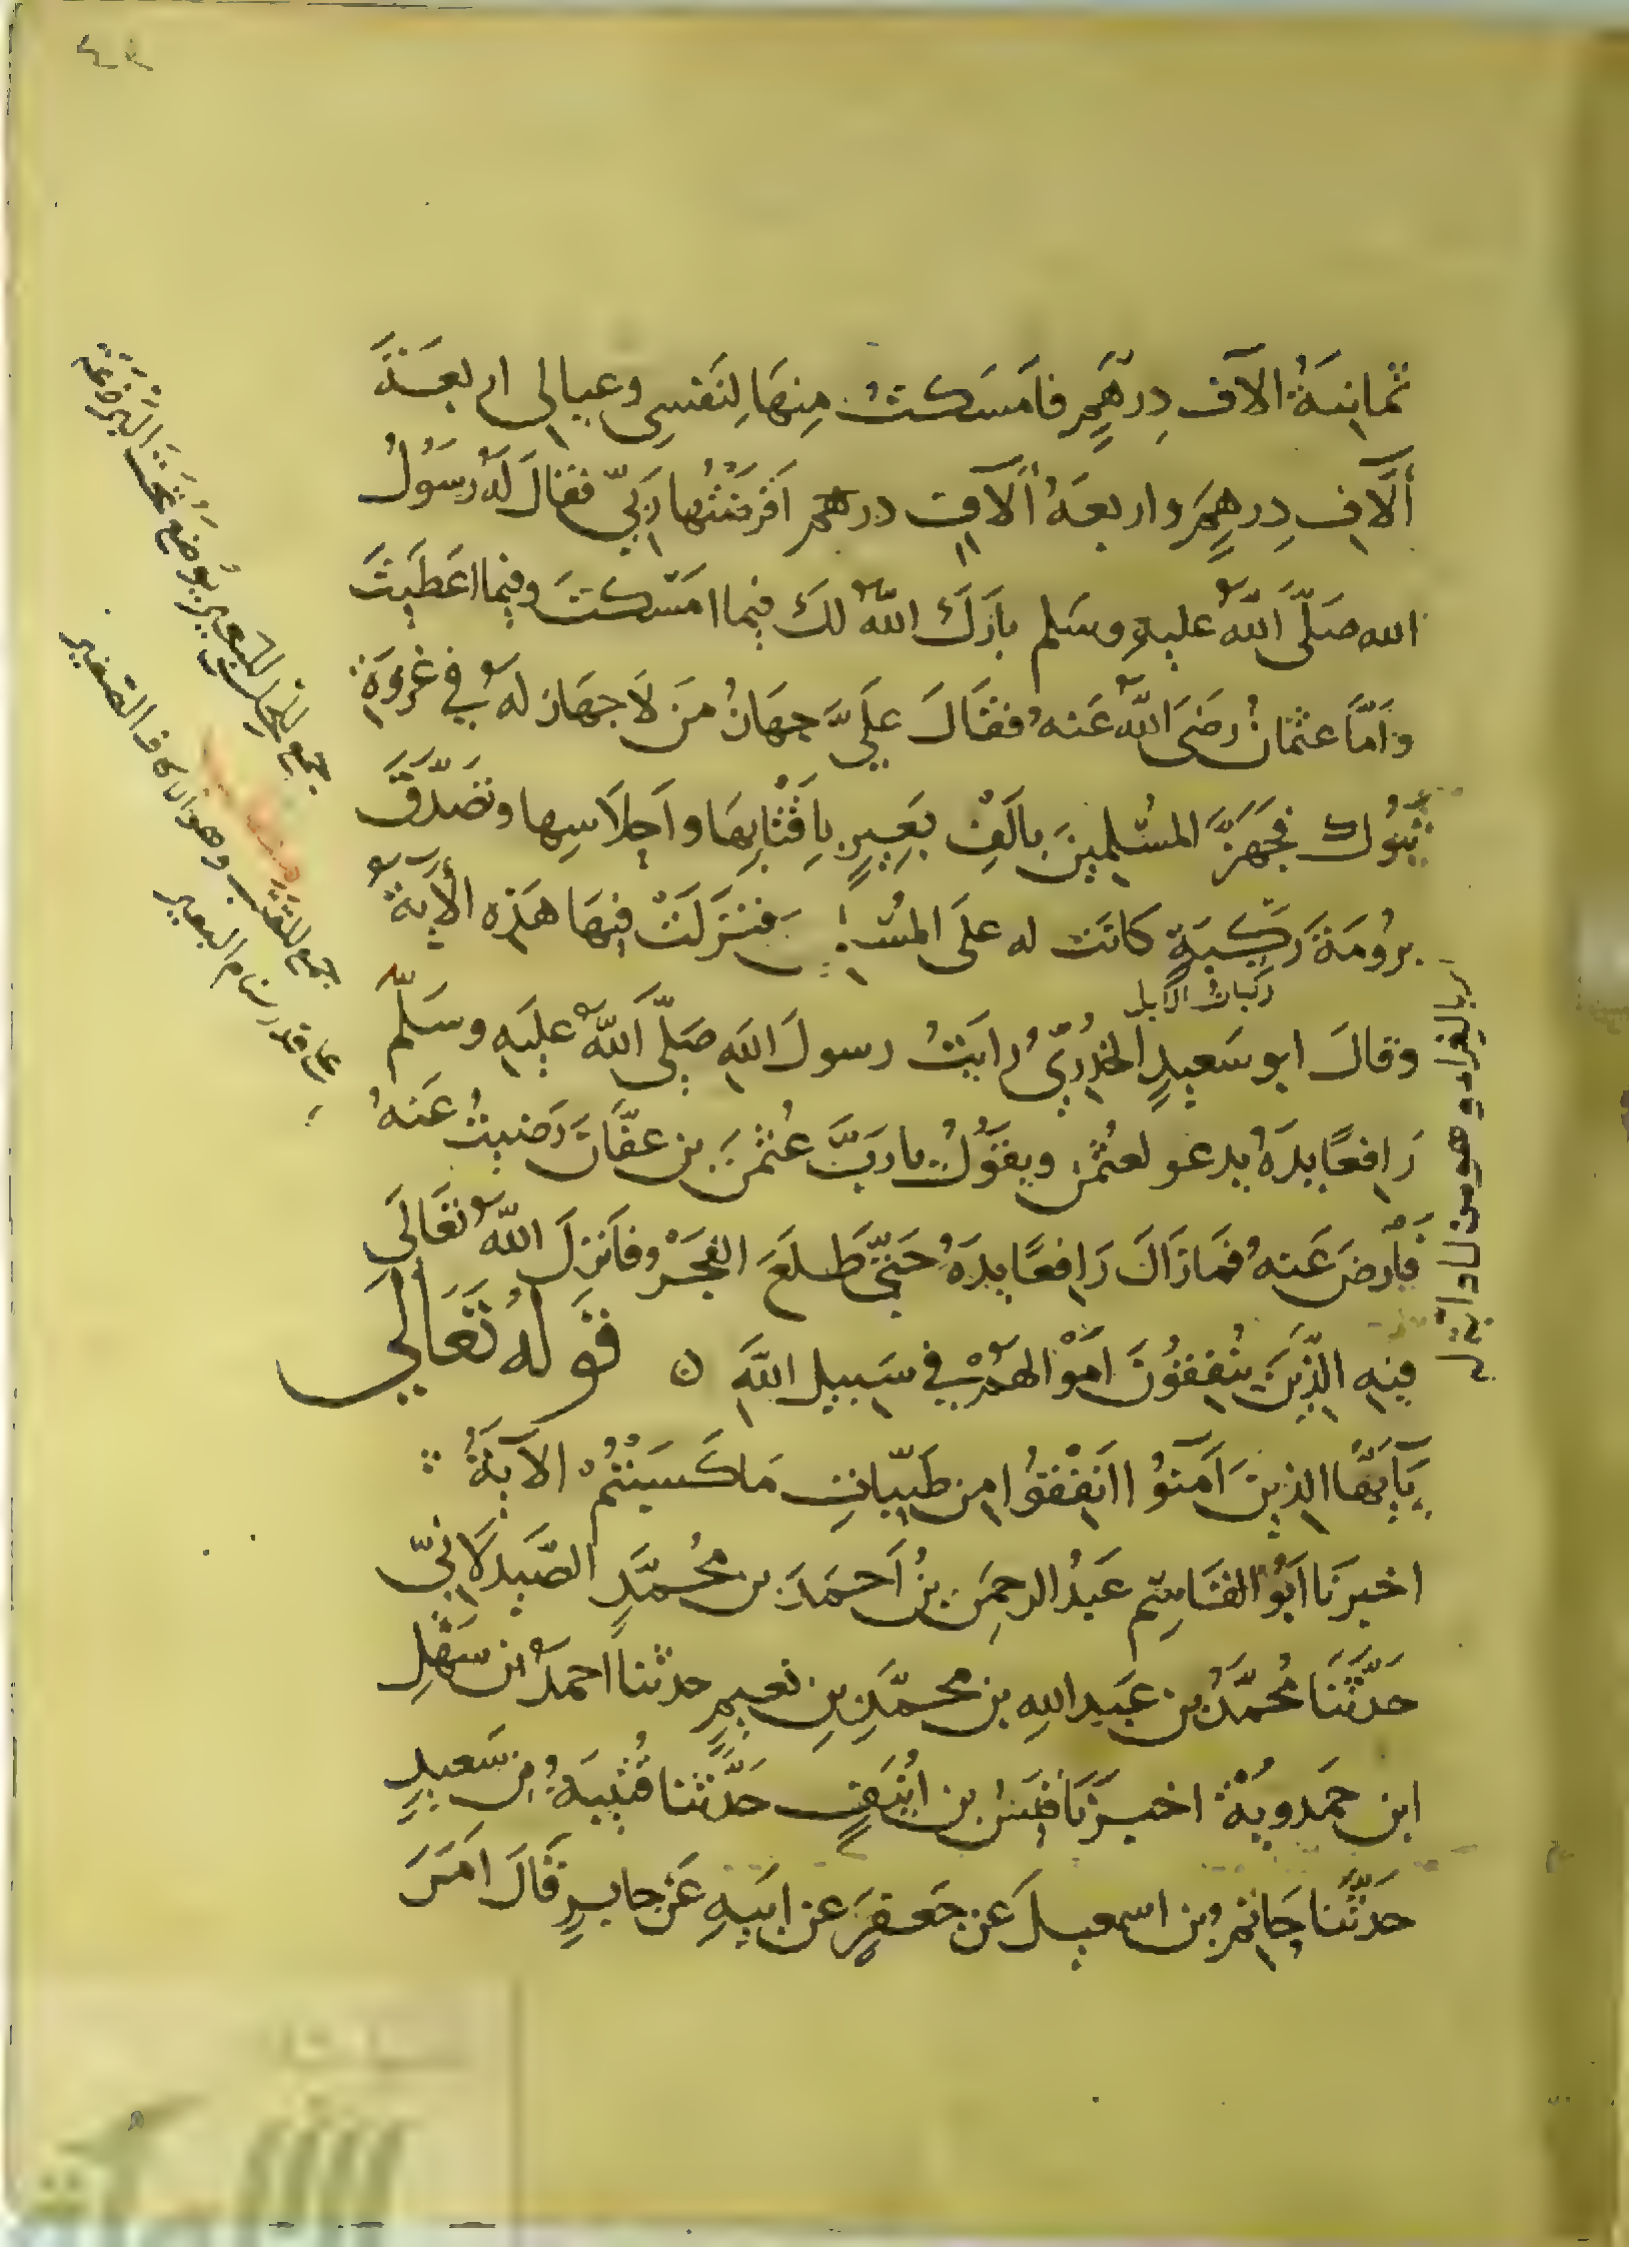 ثمانيةُ الآف دِرهَمٍ فامَسَكتُ مِنهَا لِنَفسِى وعيالى اربعَةَ
ألَافِ دِرهِمٍ واربعَةُ ألَافٍ درهمٍ اقرَضتُها رَبّي فقالَ لهُ رسَوُلُ
الله صَلّى اللهُ عليهِ وسَلم باَرَكَ اللهُ لكَ فيما امسَكتَ وفيما اعَطَيتَ
وَاَمّا عثمانُ رضَىَ اللهُ عَنهُ فقَالَ عَلَىَّ جهَازُ مَن لَا جهَازَ لهُ في غزوَةِ
تَبُوك فجَهَزَّ المسُلمِينَ بالَفِ بَعِيرٍ بِاَقْتابِهَا واَحلَاسِها وتصَدّقَ
برُومَةَ رَكِيّةٍ كانَت له علَى المسُلمين فنَزَلَتْ فيهَا هَذِه الأيَةُ
وَقالَ ابو سَعيدٍ الخدُرِىُّ رايَتُ رسولَ اللهِ صَلَّى اللهُ عليَهِ وسَلّم
رَافعًا يدَهُ يدعو لعثُمٰن ويقَوُلُ يا ربَّ عثُمٰنَ بن عفّانَ رَضيتُ عَنهُ
فاَرضَ عَنه فمَازاَلَ رَافعًا يدَهُ حَتىّ طَلعَ الفجَرْ فاَنزلَ اللهُ تعَالَى
فيهِ الذّينَ ينُفِقوُنَ اَموْالهمُ في سَبيِل اللهِ ه قَولهُ تعَالَى
يَآيّهَا الذينَ آمَنوُا انفَقوُا مِن طَيّباتِ مَا كسَبَتُمْ الآيةُ
اخبرَنا ابَوُ القاسِم عَبدُ الرحمِنَ بنُ اَحمَدَ بن محُمَّدٍ الصَّيدلَانىّ
حَدّثَنا مُحمَّدُ بن عَبدِ اللهِ بن محمَّدِ بنِ نعيمٍ حدثنا احمدُ بن سَهلِ
ابن حمَدويَهْ اخبَرَنا قيَسُ بن انُيَفٍ حَدَّثنا قُتَيبَةُ بن سَعيدٍ
حَدّثَنا حَاتمُ بن اسمعيلَ عَن جَعفرٍ عَن ابَيهِ عَن جابرٍ قالَ امَرَ
ركبات الابل
جمع للحلس للبعير يُوضَع تحتَ البَرذعَةِ
جمع للقتب وهو الاكاف الصغير
على قدر سنام البعير